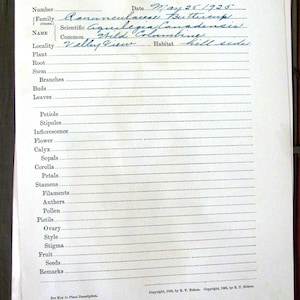 Number Date May 25 1925
(Family Ranunculaceae Buttercup
NAME Scientific Aquilegia Canadensis
Common Wild Columbine
Locality Valley View Habitat hill side
Plant
Root
Stem
Branches
Buds
Leaves
Petiole
Stipules
Inflorescence
Flower
Calyx
Sepals
Corolla
Petals
Stamens
Filaments
Anthers
Pollen
Pistils
Ovary
Style
Stigma
Fruit
Seeds
Remarks
See Key to Plant Description.